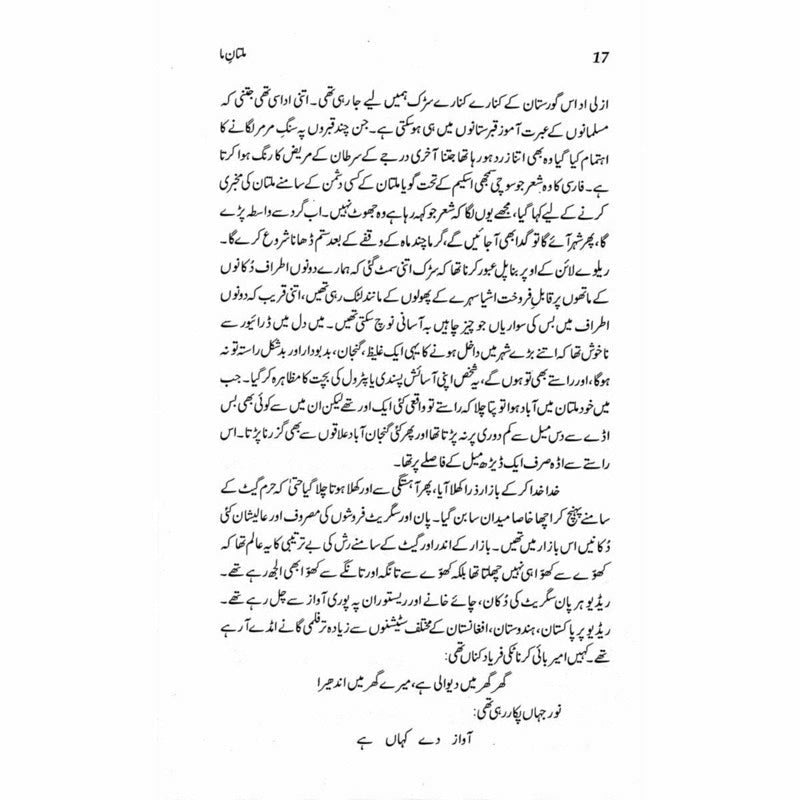 17
ملتانِ ما
ازلی اداس گورستان کے کنارے کنارے سڑک ہمیں لیے جا رہی تھی۔ اتنی اداسی تھی جتنی کہ
مسلمانوں کے عبرت آموز قبرستانوں میں ہی ہو سکتی ہے۔ جن چند قبروں پہ سنگِ مرمر لگانے کا
اہتمام کیا گیا وہ بھی اتنا زرد ہو رہا تھا جتنا آخری درجے کے سرطان کے مریض کا رنگ ہوا کرتا
ہے۔ فارسی کا وہ شعر جو سوچی سمجھی اسکیم کے تحت گویا ملتان کے کسی دشمن کے سامنے ملتان کی مخبری
کرنے کے لیے کہا گیا، مجھے یوں لگا کہ شعر جو کہہ رہا ہے وہ جھوٹ نہیں۔ اب گرد سے واسطہ پڑے
گا، پھر شہر آئے گا تو گدا بھی آ جائیں گے، گرما چند ماہ کے وقفے کے بعد ستم ڈھانا شروع کرے گا۔
ریلوے لائن کے اوپر بنا پل عبور کرنا تھا کہ سڑک اتنی سمٹ گئی کہ ہمارے دونوں اطراف دُکانوں
کے ماتھوں پر قابلِ فروخت اشیا سہرے کے پھولوں کے مانند لٹک رہی تھیں، اتنی قریب کہ دونوں
اطراف میں بس کی سواریاں جو چیز چاہیں بہ آسانی نوچ سکتی تھیں۔ میں دل میں ڈرائیور سے
ناخوش تھا کہ اتنے بڑے شہر میں داخل ہونے کا یہی ایک غلیظ، گنجان، بدبودار اور بدشکل راستہ تو نہ
ہوگا، اور راستے بھی تو ہوں گے، یہ شخص اپنی آسائش پسندی یا پٹرول کی بچت کا مظاہرہ کر گیا۔ جب
میں خود ملتان میں آباد ہوا تو پتا چلا کہ راستے تو واقعی کئی ایک اور تھے لیکن ان میں سے کوئی بھی بس
اڈے سے دس میل سے کم دوری پر نہ پڑتا تھا اور پھر کئی گنجان آباد علاقوں سے بھی گزرنا پڑتا۔ اس
راستے سے اڈہ صرف ایک ڈیڑھ میل کے فاصلے پر تھا۔
خدا خدا کر کے بازار ذرا کھلا آیا، پھر آہستگی سے اور کھلا ہوتا چلا گیا حتیٰ کہ حرم گیٹ کے
سامنے پہنچ کر اچھا خاصا میدان سا بن گیا۔ پان اور سگریٹ فروشوں کی مصروف اور عالیشان کئی
دُکانیں اس بازار میں تھیں۔ بازار کے اندر اور گیٹ کے سامنے رش کی بے ترتیبی کا یہ عالم تھا کہ
کھوّے سے کھوّا ہی نہیں چھلتا تھا بلکہ کھوّے سے تانگہ اور تانگے سے کھوّا بھی الجھ رہے تھے۔
ریڈیو ہر پان سگریٹ کی دُکان، چائے خانے اور ریستوران پہ پوری آواز سے چل رہے تھے۔
ریڈیو پر پاکستان، ہندوستان، افغانستان کے مختلف سٹیشنوں سے زیادہ تر فلمی گانے انڈے آ رہے
تھے۔ کہیں امیر بائی کرناٹکی فریاد کناں تھی:
گھر گھر میں دیوالی ہے، میرے گھر میں اندھیرا
نور جہاں پکار رہی تھی:
آواز دے کہاں ہے